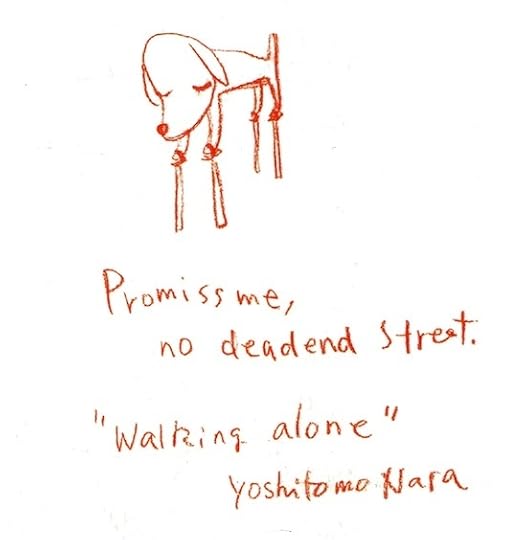 Promiss me,
no deadend street.
"Walking alone"
Yoshitomo Nara